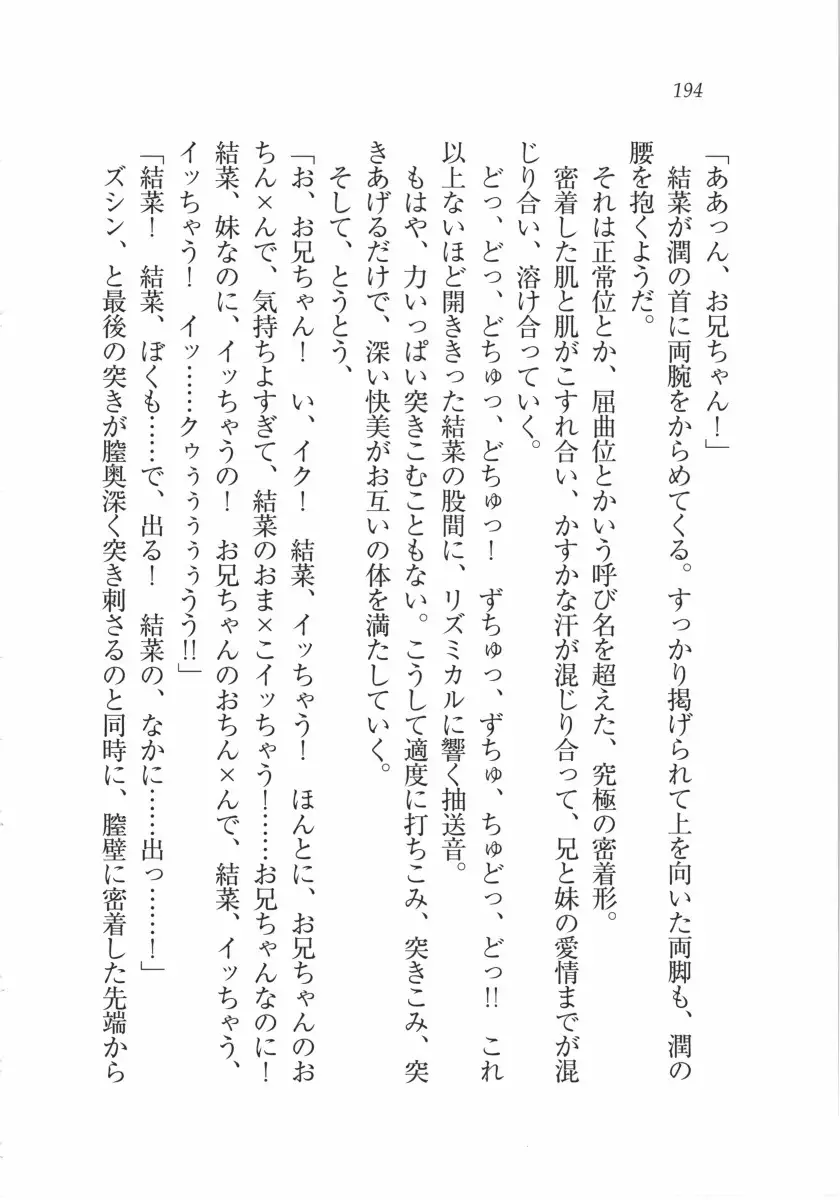 194
「ああっん、お兄ちゃん！」
結菜が潤の首に両腕をからめてくる。すっかり掲げられて上を向いた両脚も、潤の
腰を抱くようだ。
それは正常位とか、屈曲位とかいう呼び名を超えた、究極の密着形。
密着した肌と肌がこすれ合い、かすかな汗が混じり合って、兄と妹の愛情までが混
じり合い、溶け合っていく。
どっ、どっ、どちゅっ、どちゅっ！　ずちゅっ、ずちゅ、ちゅどっ、どっ!!　これ
以上ないほど開ききった結菜の股間に、リズミカルに響く抽送音。
もはや、力いっぱい突きこむこともない。こうして適度に打ちこみ、突きこみ、突
きあげるだけで、深い快美がお互いの体を満たしていく。
そして、とうとう、
「お、お兄ちゃん！　い、イク！　結菜、イッちゃう！　ほんとに、お兄ちゃんのお
ちん×んで、気持ちよすぎて、結菜のおま×こイッちゃう！……お兄ちゃんなのに！
結菜、妹なのに、イッちゃうの！　お兄ちゃんのおちん×んで、結菜、イッちゃう、
イッちゃう！　イッ……クゥぅぅぅぅうう!!」
「結菜！　結菜、ぼくも……で、出る！　結菜の、なかに……出っ……！」
ズシン、と最後の突きが膣奥深く突き刺さるのと同時に、膣壁に密着した先端から